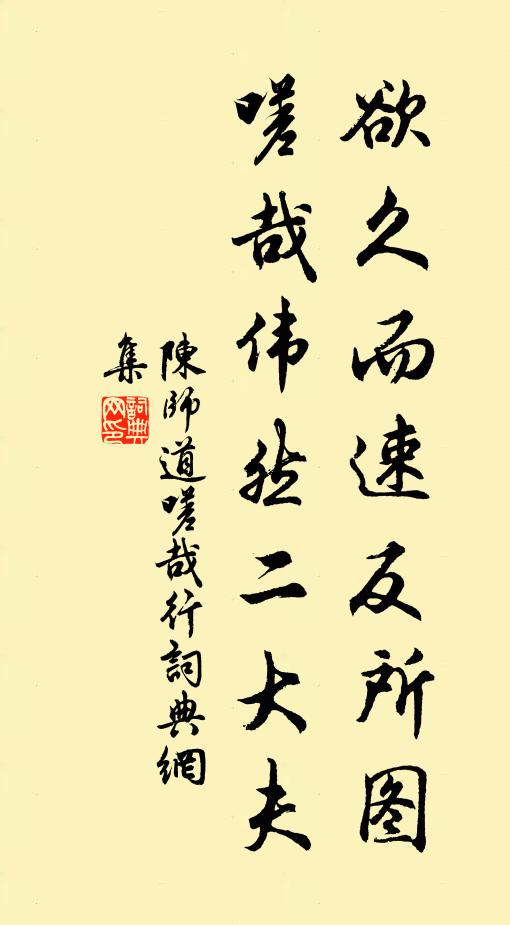 欲久而速反所图
嗟哉伟然二大夫
陳師道嗟哉行詞典網
集
詞典網印